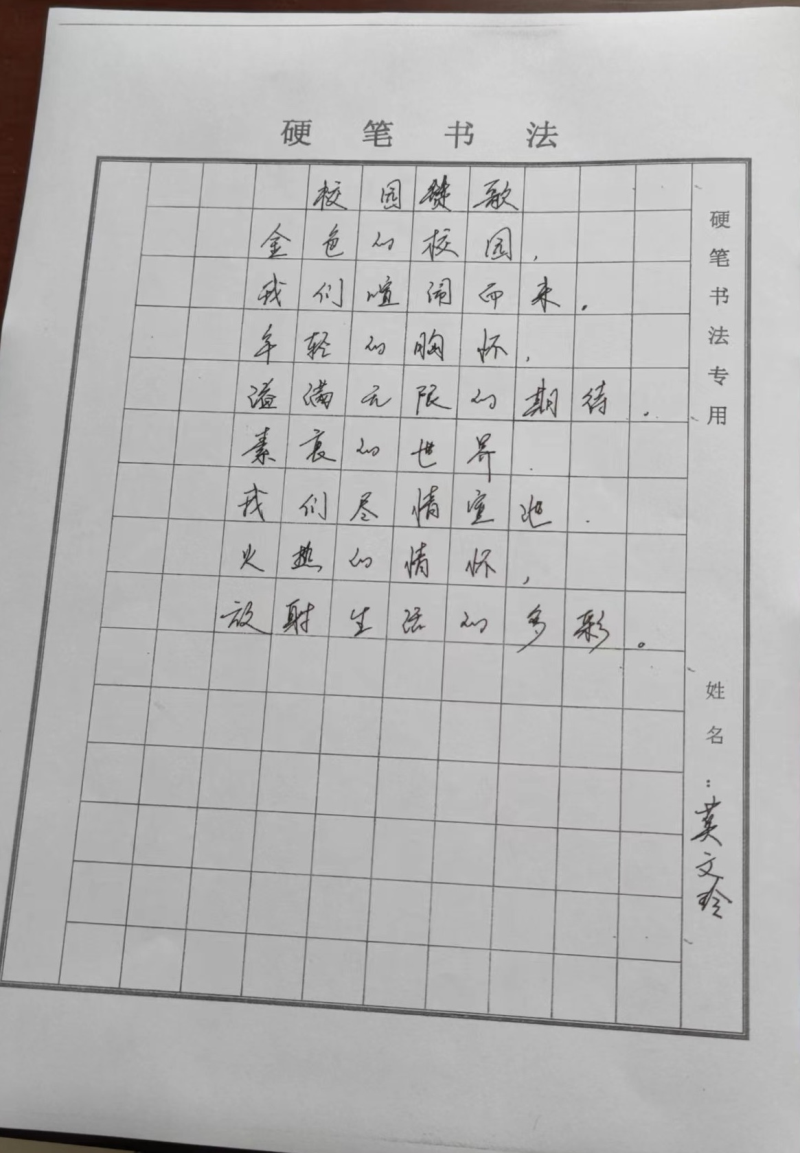 硬笔书法
校园赞歌
金色的校园，
我们喧闹而来。
年轻的胸怀，
溢满无限的期待。
素裹的世界.
我们尽情宣泄.
火热的情怀，
放射生活的多彩。
硬笔书法专用
姓名：英文玲